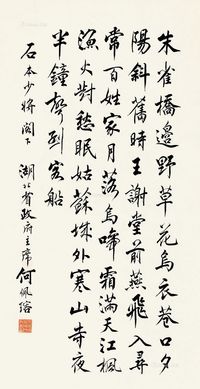 朱雀橋邊野草花烏衣巷口夕
陽斜舊時王謝堂前燕飛入尋
常百姓家月落烏啼霜滿天江楓
漁火對愁眠姑蘇城外寒山寺夜
半鐘聲到客船
石本少將閣下
湖北省政府主席何佩瑢